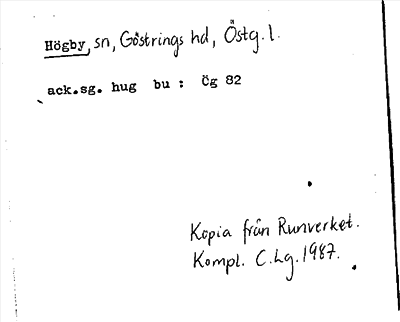 Högby, sn, Göstrings hd, Östg. l.
ack.sg. hug bu : Ög 82
Kopia från Runverket.
Kompl. C.Lg. 1987.